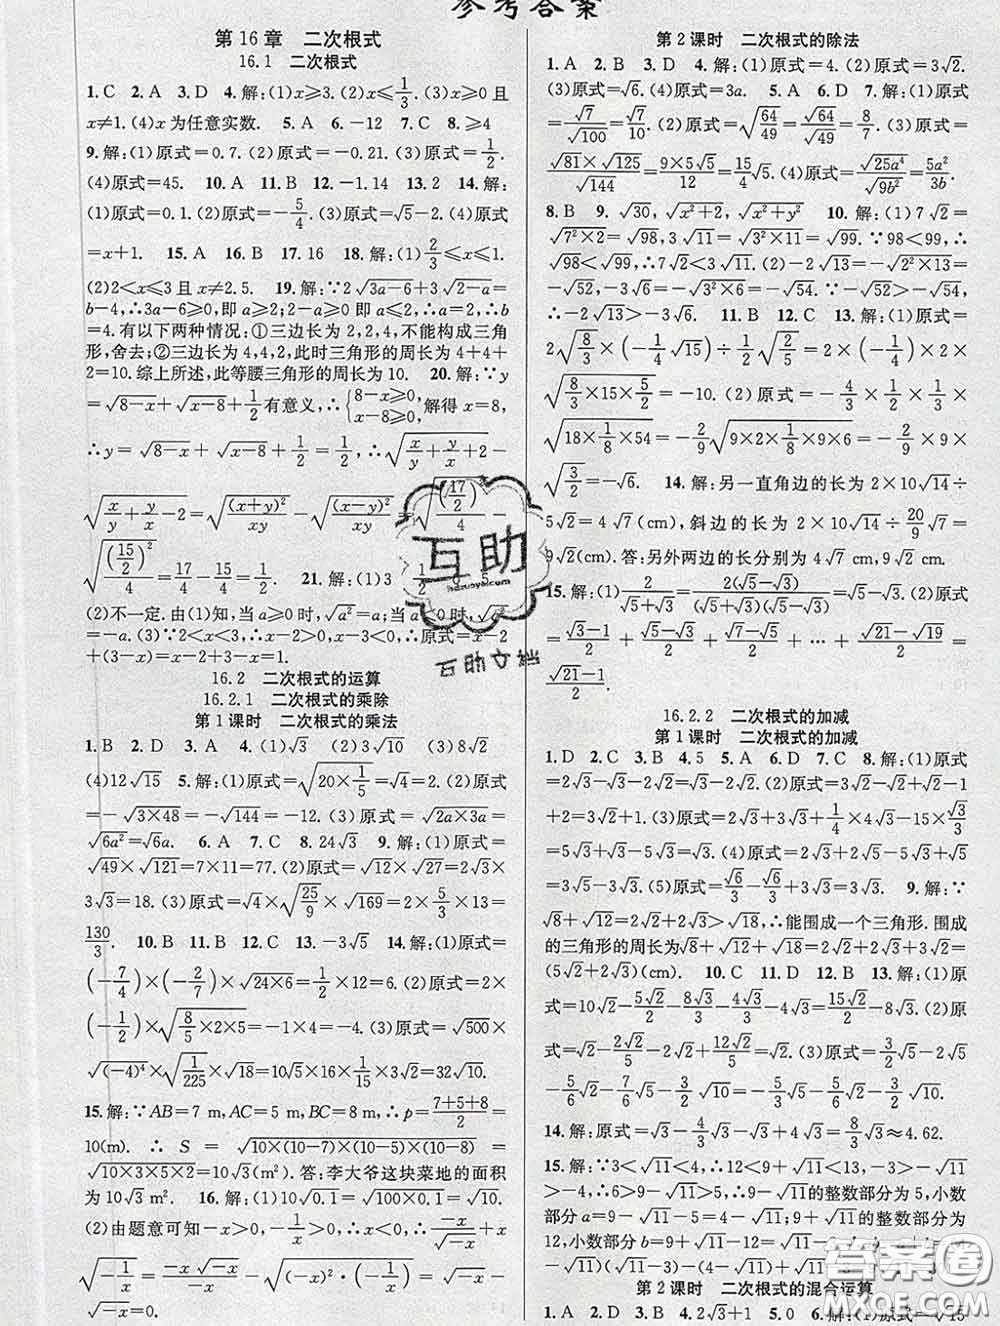 参考答案
第16章 二次根式
16.1 二次根式
1.C 2.A 3.D 4.解:(1)x⩾3.(2)x⩽1/3.(3)x⩾0且
x≠1.(4)x为任意实数. 5.A 6.-12 7.C 8.⩾4
9.解:(1)原式=0.7.(2)原式=-0.21.(3)原式=1/2.
(4)原式=45. 10.A 11.B 12.-1.14 13.2 14.解:
(1)原式=0.1.(2)原式=-5/4.(3)原式=√5-2.(4)原式
=x+1. 15.A 16.B 17.16 18.解:(1)2/3⩽x⩽1.
(2)2<x⩽3且x≠2.5. 19.解:∵2√(3a-6)+3√(2-a)=
b-4,∴3a-6⩾0,即a⩾2;2-a⩾0即a⩽2,∴a=2,∴b
=4.有以下两种情况:①三边长为2,2,4,不能构成三角
形,舍去;②三边长为4,4,2,此时三角形的周长为4+4+
2=10.综上所述,此等腰三角形的周长为10. 20.解:∵y
=√(8-x)+√(x-8)+1/2有意义,∴{8-x⩾0, x-8⩾0,解得x=8,
∴y=√(8-x)+√(x-8)+1/2=1/2,∴√(x/y+y/x+2)-
√(x/y+y/x-2)=√((x+y)²/xy)-√((x-y)²/xy)=√((17/2)²/4)-
√((15/2)²/4)=17/4-15/4=1/2. 21.解:(1)3 1/2 0 5
(2)不一定.由(1)知当a⩾0时,√a²=a;当a<0时,√a²=
-a.(3)∵√(x-2)<1,∴x-2>0,x-3<0,∴原式=x-2
+(3-x)=1.
16.2 二次根式的运算
16.2.1 二次根式的乘除
第1课时 二次根式的乘法
1.B 2.D 3.A 4.(1)√3 (2)3√3 (3)8√2
(4)12√15 5.解:(1)原式=√(20×1/5)=√4=2.(2)原式=
-√(3×48)=-√144=-12.(3)原式=√(2a×3a)=
√(6a²)=√6a. 6.A 7.C 8.24√3 9.解:(1)原式=
√49×√121=7×11=77.(2)原式=√12×√27=2√3×
3√3=18.(3)原式=√(25/9)×√(169×4)=5/3×13×2=
130/3. 10.B 11.B 12.D 13.-3√5 14.解:(1)原式=
(-7/4)×(-2/7)×√(24×6)=1/2×12=6.(2)原式=2×
(-1/2)×√(8/5×2×5)=-1×4=-4.(3)原式=√500×
√((-4)⁴)×√(1/225)×√18=10√5×16×1/15×3√2=32√10.
15.解:∵AB=7 m,AC=5 m,BC=8 m,∴p=(7+5+8)/2=
10(m). ∴ S = √(10×(10-7)×(10-5)×(10-8)) =
√(10×3×5×2)=10√3(m²).答:李大爷这块菜地的面积
为10√3 m². 16.解:(1)10√0.1=√100×√0.1=√10.
(2)由题意可知-x>0,-1/x>0,∴x<0,∴-x/√(-x)+x
√(-1/x)=-x√(-x)/(-x)-√((-x)²·(-1/x))=√(-x)-
√(-x)=0.
第2课时 二次根式的除法
1.A 2.B 3.D 4.解:(1)原式=4.(2)原式=3√2.
(3)原式=√6.(4)原式=3a. 5.A 6.D 7.解:(1)原式=
√7/√100=√7/10.(2)原式=√(64/49)=√64/√49=8/7.(3)原式=
√81×√125/√144=9×5√5/12=15/4√5.(4)原式=√(25a⁴)/√(9b²)=5a²/3b.
8.B 9.√30,√(x²+2),√(x²+y²) 10.解:(1)7√2=
√(7²×2)=√98,3√11=√(3²×11)=√99.∵98<99,∴
√98<√99,∴7√2<3√11.(2)-2√13=-√(2²×13)=
-√52,-3√6=-√(3²×6)=-√54.∵-√52>-√54,
∴-2√13>-3√6. 11.B 12.C 13.解:(1)原式=
2√(8/3)×(-1/4√15)÷1/2√(2/5)=2×(-1/4)÷1/2×
√(8/3×15×5/2)=-10.(2)原式=-3/4×1/3×8/9×
√(18×1/8×54)=-2/9√(9×2×1/8×9×6)=-2/9×9
×√(3/2)=-√6. 14.解:另一直角边的长为2×10√14÷
5√2=4√7(cm),斜边的长为2×10√14÷20/9√7=
9√2(cm).答:另外两边的长分别为4√7 cm,9√2 cm.
15.解:(1)2/(√5+√3)=2(√5-√3)/((√5+√3)(√5-√3))=√5-√3.(2)原式
=(√3-1)/2+(√5-√3)/2+(√7-√5)/2+…+(√21-√19)/2=
(√21-1)/2.
16.2.2 二次根式的加减
第1课时 二次根式的加减
1.D 2.C 3.B 4.5 5.A 6.D 7.C 8.解:(1)原
式=2√3-√3=√3.(2)原式=2√3-√2+√2-1
+2=2√3+1.(3)原式=3√2+1/4×4√3-15×√3/3
=5√3+√3-5√3=√3.(4)原式=2√3+2√5-√5+√3=
3√3+√5.(5)原式=√6/3-√6/3+3√3=3√3. 9.解:∵
√8+√12=2√2+2√3>√18,∴能围成一个三角形.围成
的三角形的周长为√8+√12+√18=2√2+2√3+3√2=
(5√2+2√3)(cm). 10.C 11.D 12.B 13.解:(1)原
式=10√2-5√2/3-4√3/3-4√3/3+4√2=15√2/2-8√3.(2)原
式=√2-2√5/5-2√2+2√5=8√5/5-√2.(3)原式=3/2√5-2√5-
5/6√2-1/6√2=-√5/2-√2.
14.解:原式=√3-4/3√3-√3+4√3=8/3√3≈4.62.
15.解:∵3<√11<4,∴12<9+√11<13.∵-3>-√11
>-4,∴6>9-√11>5,∴9-√11的整数部分为5,小数
部分a=9-√11-5=4-√11;9+√11的整数部分为
12,小数部分b=9+√11-12=√11-3.
第2课时 二次根式的混合运算
1.A 2.D 3.B 4.2√3+1 5.0 6.解:(1)原式=√15
互助
答案圈
MXQE.COM